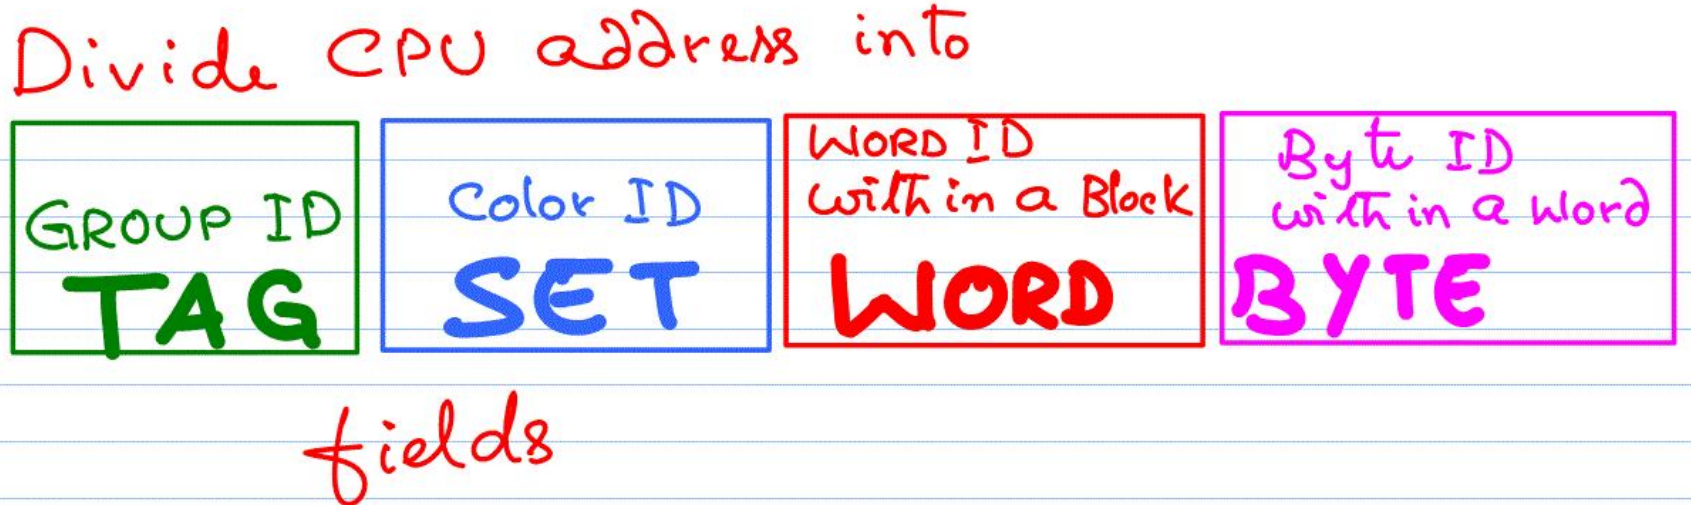 Divide CPU address into
GROUP ID
TAG
Color ID
SET
WORD ID
with in a Block
WORD
Byte ID
with in a Word
BYTE
fields